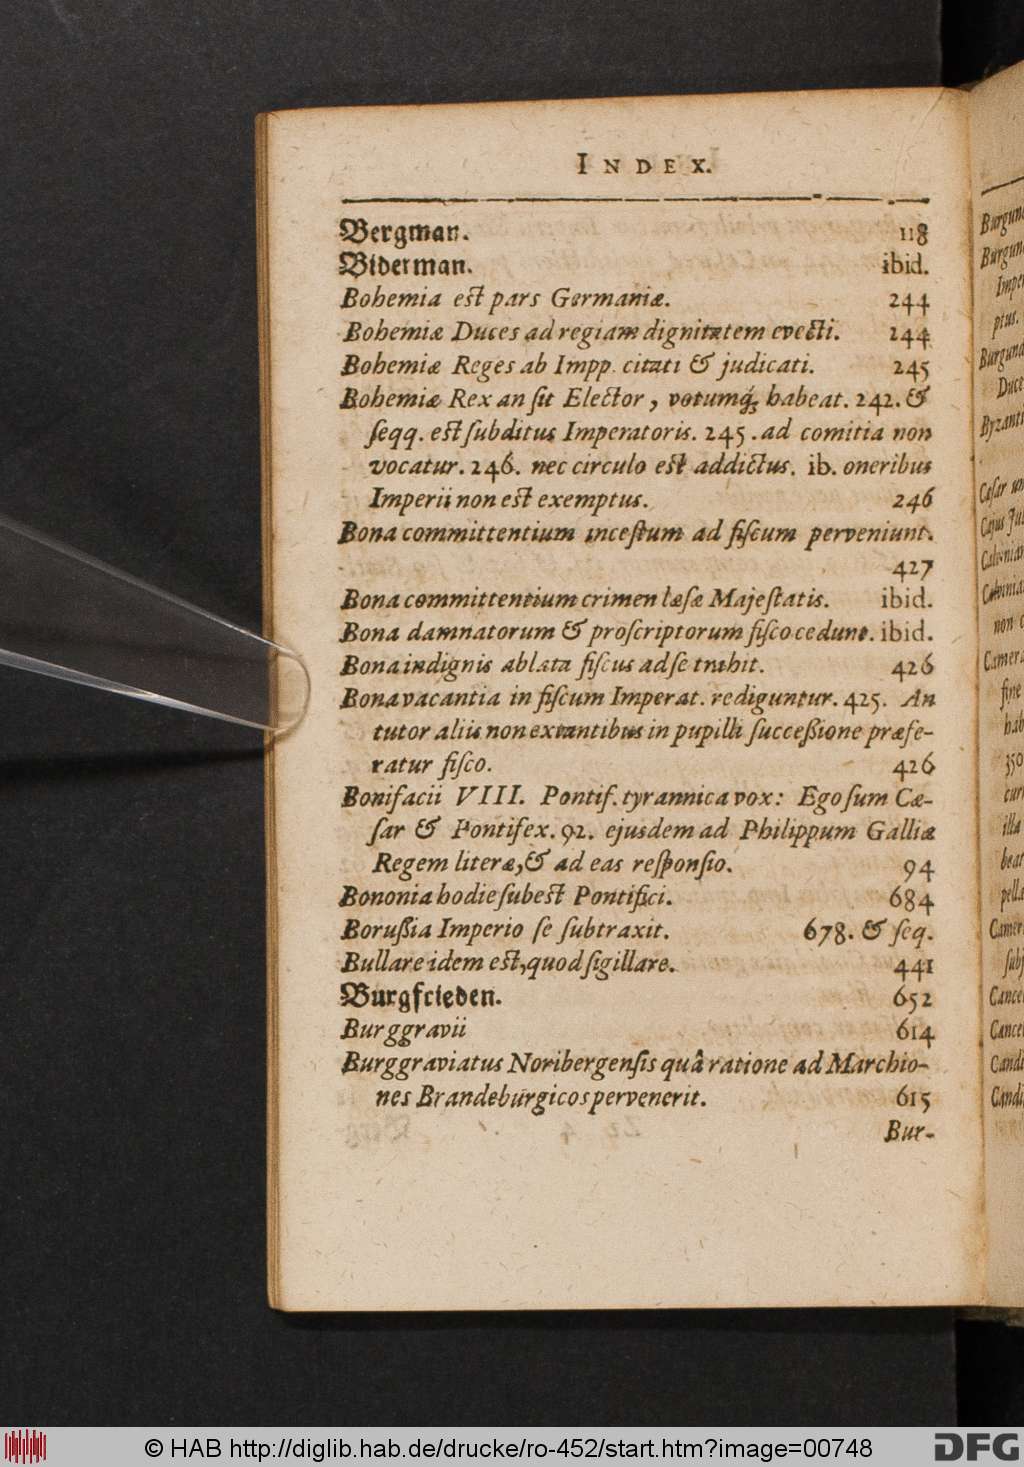 INDEX.
Bergman. 118
Biderman. ibid.
Bohemia est pars Germaniæ. 244
Bohemiæ Duces ad regiam dignitatem evecti. 244
Bohemiæ Reges ab Impp. citati & judicati. 245
Bohemiæ Rex an ſit Elector, votumq́; habeat. 242. &
ſeqq. est ſubditus Imperatoris. 245. ad comitia non
vocatur. 246. nec circulo est addictus. ib. oneribus
Imperii non est exemptus. 246
Bona committentium inceſtum ad fiſcum perveniunt.
427
Bona committentium crimen læſæ Majeſtatis. ibid.
Bona damnatorum & proſcriptorum fiſco cedunt. ibid.
Bona indignis ablata fiſcus ad ſe trahit. 426
Bona vacantia in fiſcum Imperat. rediguntur. 425. An
tutor aliis non extantibus in pupilli ſucceßione præfe-
ratur fiſco. 426
Bonifacii VIII. Pontif. tyrannica vox: Ego ſum Cæ-
ſar & Pontifex. 92. ejusdem ad Philippum Galliæ
Regem literæ, & ad eas reſponſio. 94
Bononia hodie ſubest Pontifici. 684
Borußia Imperio ſe ſubtraxit. 678. & ſeq.
Bullare idem est, quod ſigillare. 441
Burgfrieden. 652
Burggravii 614
Burggraviatus Noribergenſis quâ ratione ad Marchio-
nes Brandeburgicos pervenerit. 615
Bur-
Burgun
Burgun
Impe
ptus.
Burgund
Duce
Byzanti
Cæſar
Cajus
non
Camer
fine
hab
350
cur
illa
beat
pell
Camer
ſubj
Cance
Cance
Candi
Candi
© HAB http://diglib.hab.de/drucke/ro-452/start.htm?image=00748
DFG